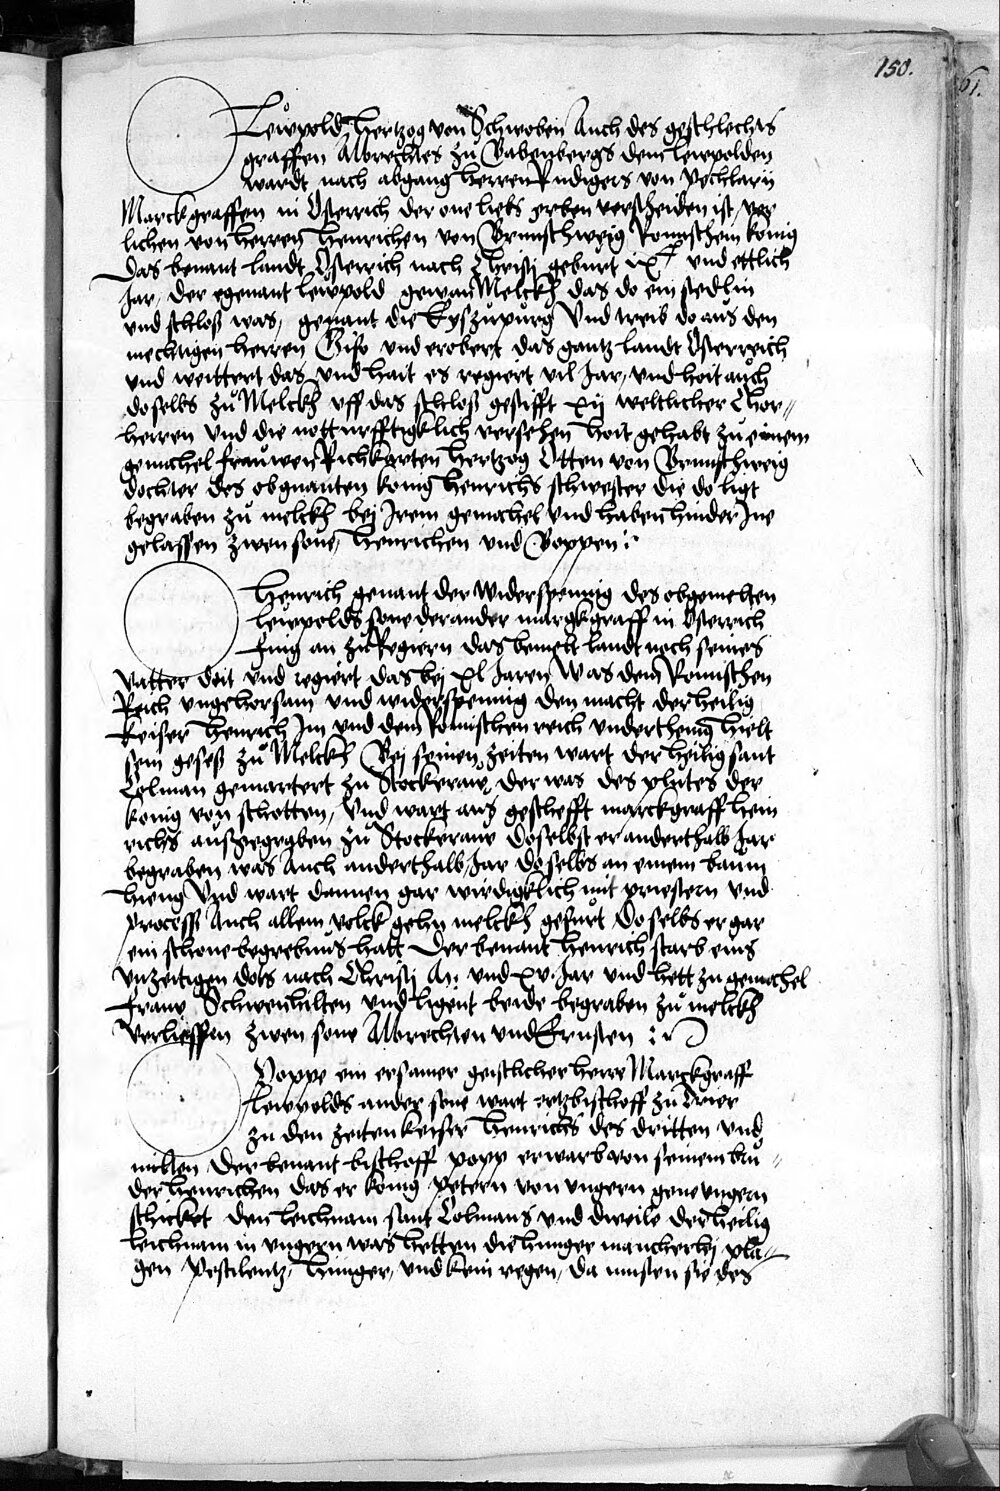 150.
61.
Leupold Hertzog von Schwoben Auch des geschlechts
graffen Albrechtes zu Babenbergs dem leuppolden
wardt nach abgang herren Rudigers von Pechlarn
Marckgraffen in Osterrich der one liebs erben verscheiden ist, ver
lichen von herren Henrichen von Brunschweig Romischem konig
Das benant landt Osterrich nach Christi geburt ixc und ettlich
Jar, Der egenant leupold gewan Melckh das do ein stedlin
und schloß was, genant die Eyszupurg Und treib do aus den
mechtigen herren Giso und erobert das gantz landt Osterreich
und weittert das und hait es regiert vil Jar, und hoit auch
doselbs zu Melckh uff das schloß gestifft xij weltlicher Chor-
herren Und die notturfftigklich versehen hoit gehabt zu einem
gemachel frauwen Richkarten Hertzog Otten von Brunschweig
dochter des obgnanten konig Henrichs schwester die do ligt
begraben zu melckh bej Irem gemachel Und haben hinder Ine
gelassen zwen sone, Henrichen und Boppen
Henrich genant der Widerspennig des obgemelten
leupolds sone der ander margkgraff in Osterrich
Fing an zu Regiern das bemelt landt nach seines
Vatter doit Und regiert das bej xl Jaren Was dem Romischen
Reich ungehorsam und widerspennig den macht der heilig
Keiser Henrich Im und dem Romischen reich underthenig hielt
sein geseß zu Melckh Bej seinen zeiten wart der heilig sant
Colman gemartert zu Stockeraw, der was des plutes der
konig von schotten, Und wart aus geschefft marckgraff Hein
richs außgegraben zu Stockeraw doselbst er anderthalb Jar
begraben was Auch anderthalb Jar doselbs an einem baum
hieng Und wart dannen gar wirdigklich mit priestern und
process Auch allem volck gehn melckh gefurt Doselbs er gar
ein schone begrebnus hatt Der benant Henrich starb eins
unzeitigen dots nach Christi M. und xv. Jar und hett zu gemachel
fraw Schwenhilten und ligent beide begraben zu melckh
Verliessen zwen sone Albrechten und Ernsten
Poppe ein ersamer geistlicher herre Marckgraff
leupolds ander sone wart ertzbischoff zu Trier
zu den zeiten keiser Henrichs des dritten und
milten Der benant bischoff popp erwarb von seinem bru-
der Henrichen das er konig petern von ungern gene ungern
schicket den leichnam sant Colmans und dweile der heilig
leichnam in ungern was hetten die hunger mancherlej pla-
gen Pestilentz, Hunger, und kein regen, da musten sie des